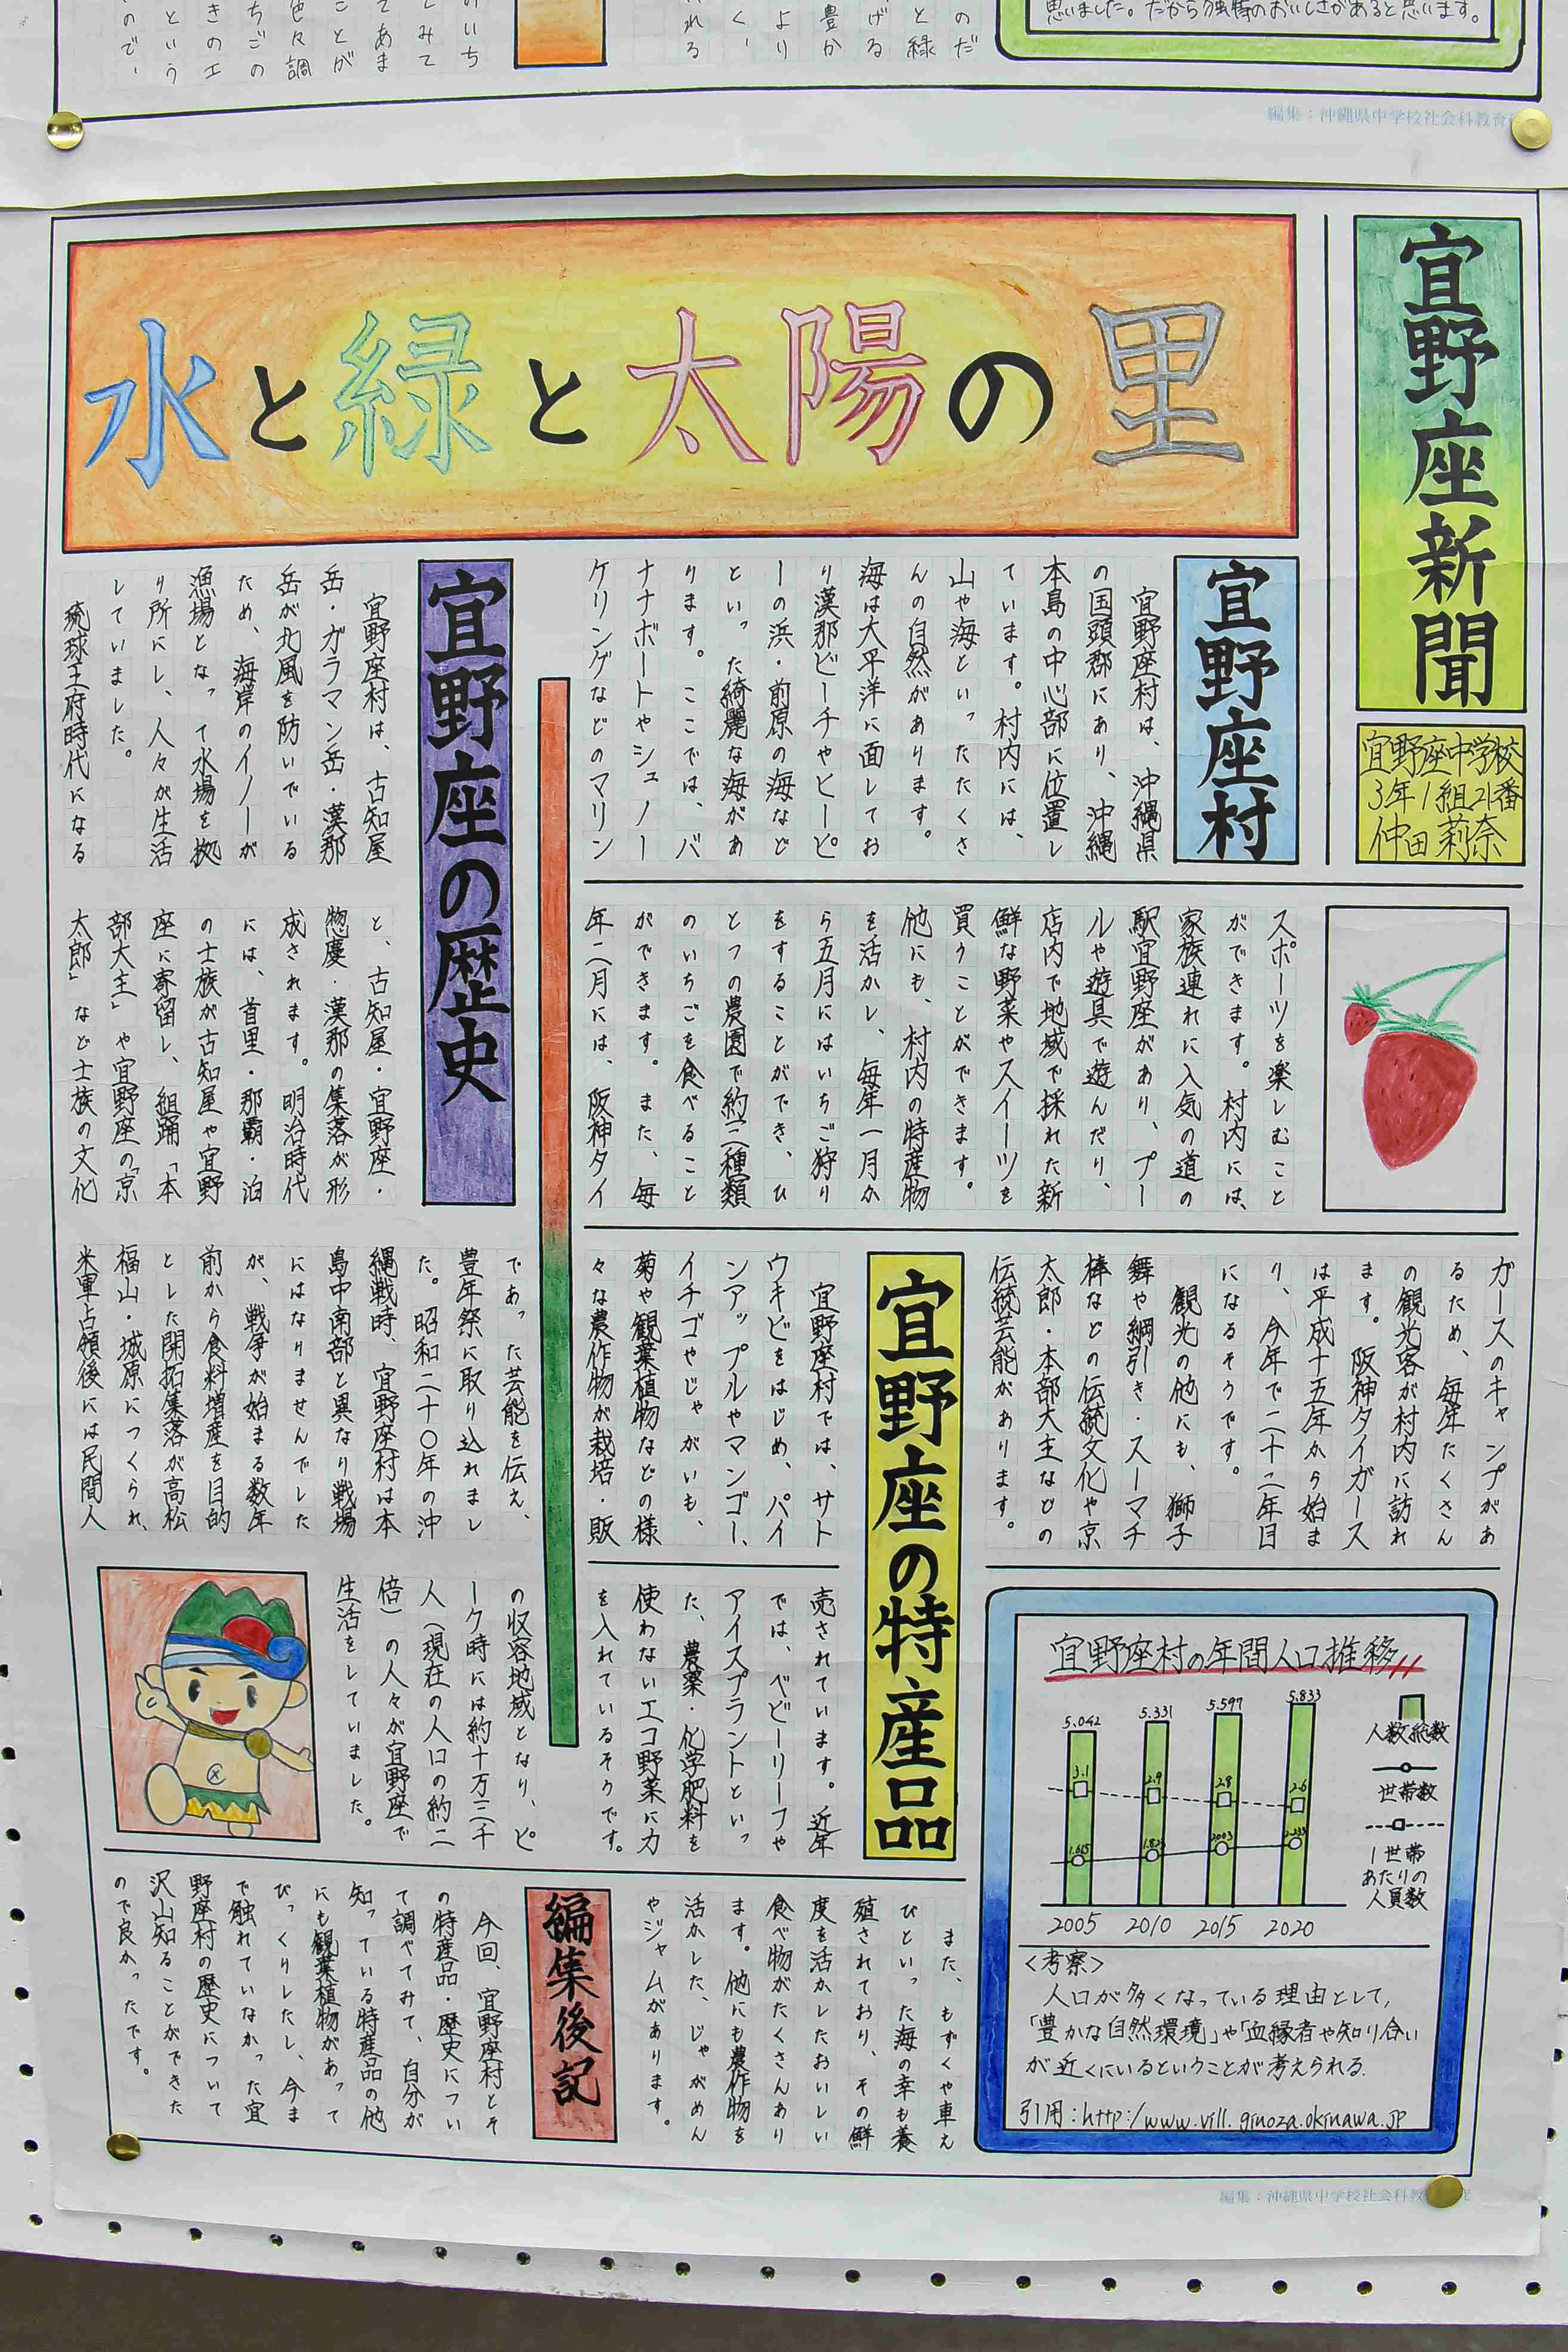 思いました。だから独特のおいしさがあると思います。
編集：沖縄県中学校社会科教育
宜野座新聞
宜野座中学校
3年1組21番
仲田莉奈
水と緑と太陽の里
宜野座村
宜野座村は、沖縄県
の国頭郡にあり、沖縄
本島の中心部に位置し
ています。村内には、
山や海といったたくさ
んの自然があります。
海は大平洋に面してお
り漢那ビーチやヒーピ
ーの浜・前原の海など
といった綺麗な海があ
ります。ここでは、バ
ナナボートやシュノー
ケリングなどのマリン
スポーツを楽しむこと
ができます。村内には、
家族連れに人気の道の
駅宜野座があり、プー
ルや遊具で遊んだり、
店内で地域で採れた新
鮮な野菜やスイーツを
買うことができます。
他にも、村内の特産物
を活かし、毎年一月か
ら五月にはいちご狩り
をすることができ、ひ
とつの農園で約三種類
のいちごを食べること
ができます。また、毎
年二月には、阪神タイ
ガースのキャンプがあ
るため、毎年たくさん
の観光客が村内に訪れ
ます。阪神タイガース
は平成十五年から始ま
り、今年で二十二年目
になるそうです。
観光の他にも、獅子
舞や綱引き・スーマチ
棒などの伝統文化や京
太郎・本部大主などの
伝統芸能があります。
宜野座の特産品
宜野座村では、サト
ウキビをはじめ、パイ
ンアップルやマンゴー、
イチゴやじゃがいも、
菊や観葉植物などの様
々な農作物が栽培・販
売されています。近年
では、ベビーリーフや
アイスプラントといっ
た、農薬・化学肥料を
使わないエコ野菜に力
を入れているそうです。
また、もずくや車え
びといった海の幸も養
殖されており、その鮮
度を活かしたおいしい
食べ物がたくさんあり
ます。他にも農作物を
活かした、じゃがめん
やジャムがあります。
宜野座の歴史
宜野座村は、古知屋
岳・ガラマン岳・漢那
岳が北風を防いでいる
ため、海岸のイノーが
漁場となって水場を拠
り所にし、人々が生活
していました。
琉球王府時代になる
と、古知屋・宜野座・
惣慶・漢那の集落が形
成されます。明治時代
には、首里・那覇・泊
の士族が古知屋や宜野
座に寄留し、組踊「本
部大主」や宜野座の「京
太郎」など士族の文化
であった芸能を伝え、
豊年祭に取り込れまし
た。昭和二十〇年の沖
縄戦時、宜野座村は本
島中南部と異なり戦場
にはなりませんでした
が、戦争が始まる数年
前から食料増産を目的
とした開拓集落が高松
福山・城原につくられ、
米軍占領後には民間人
の収容地域となり、ピ
ーク時には約十万三千
人（現在の人口の約二
倍）の人々が宜野座で
生活をしていました。
編集後記
今回、宜野座村とそ
の特産品・歴史につい
て調べてみて、自分が
知っている特産品の他
にも観葉植物があって
びっくりしたし、今ま
で触れていなかった宜
野座村の歴史について
沢山知ることができた
ので良かったです。
宜野座村の年間人口推移
5.042
5.331
5.597
5.833
3.1
2.9
2.8
2.6
2005
2010
2015
2020
人数総数
世帯数
1世帯
あたりの
人員数
＜考察＞
人口が多くなっている理由として、
「豊かな自然環境」や「血縁者や知り合い
が近くにいるということが考えられる.
引用：http:/www.vill.ginoza.okinawa.jp
編集：沖縄県中学校社会科教